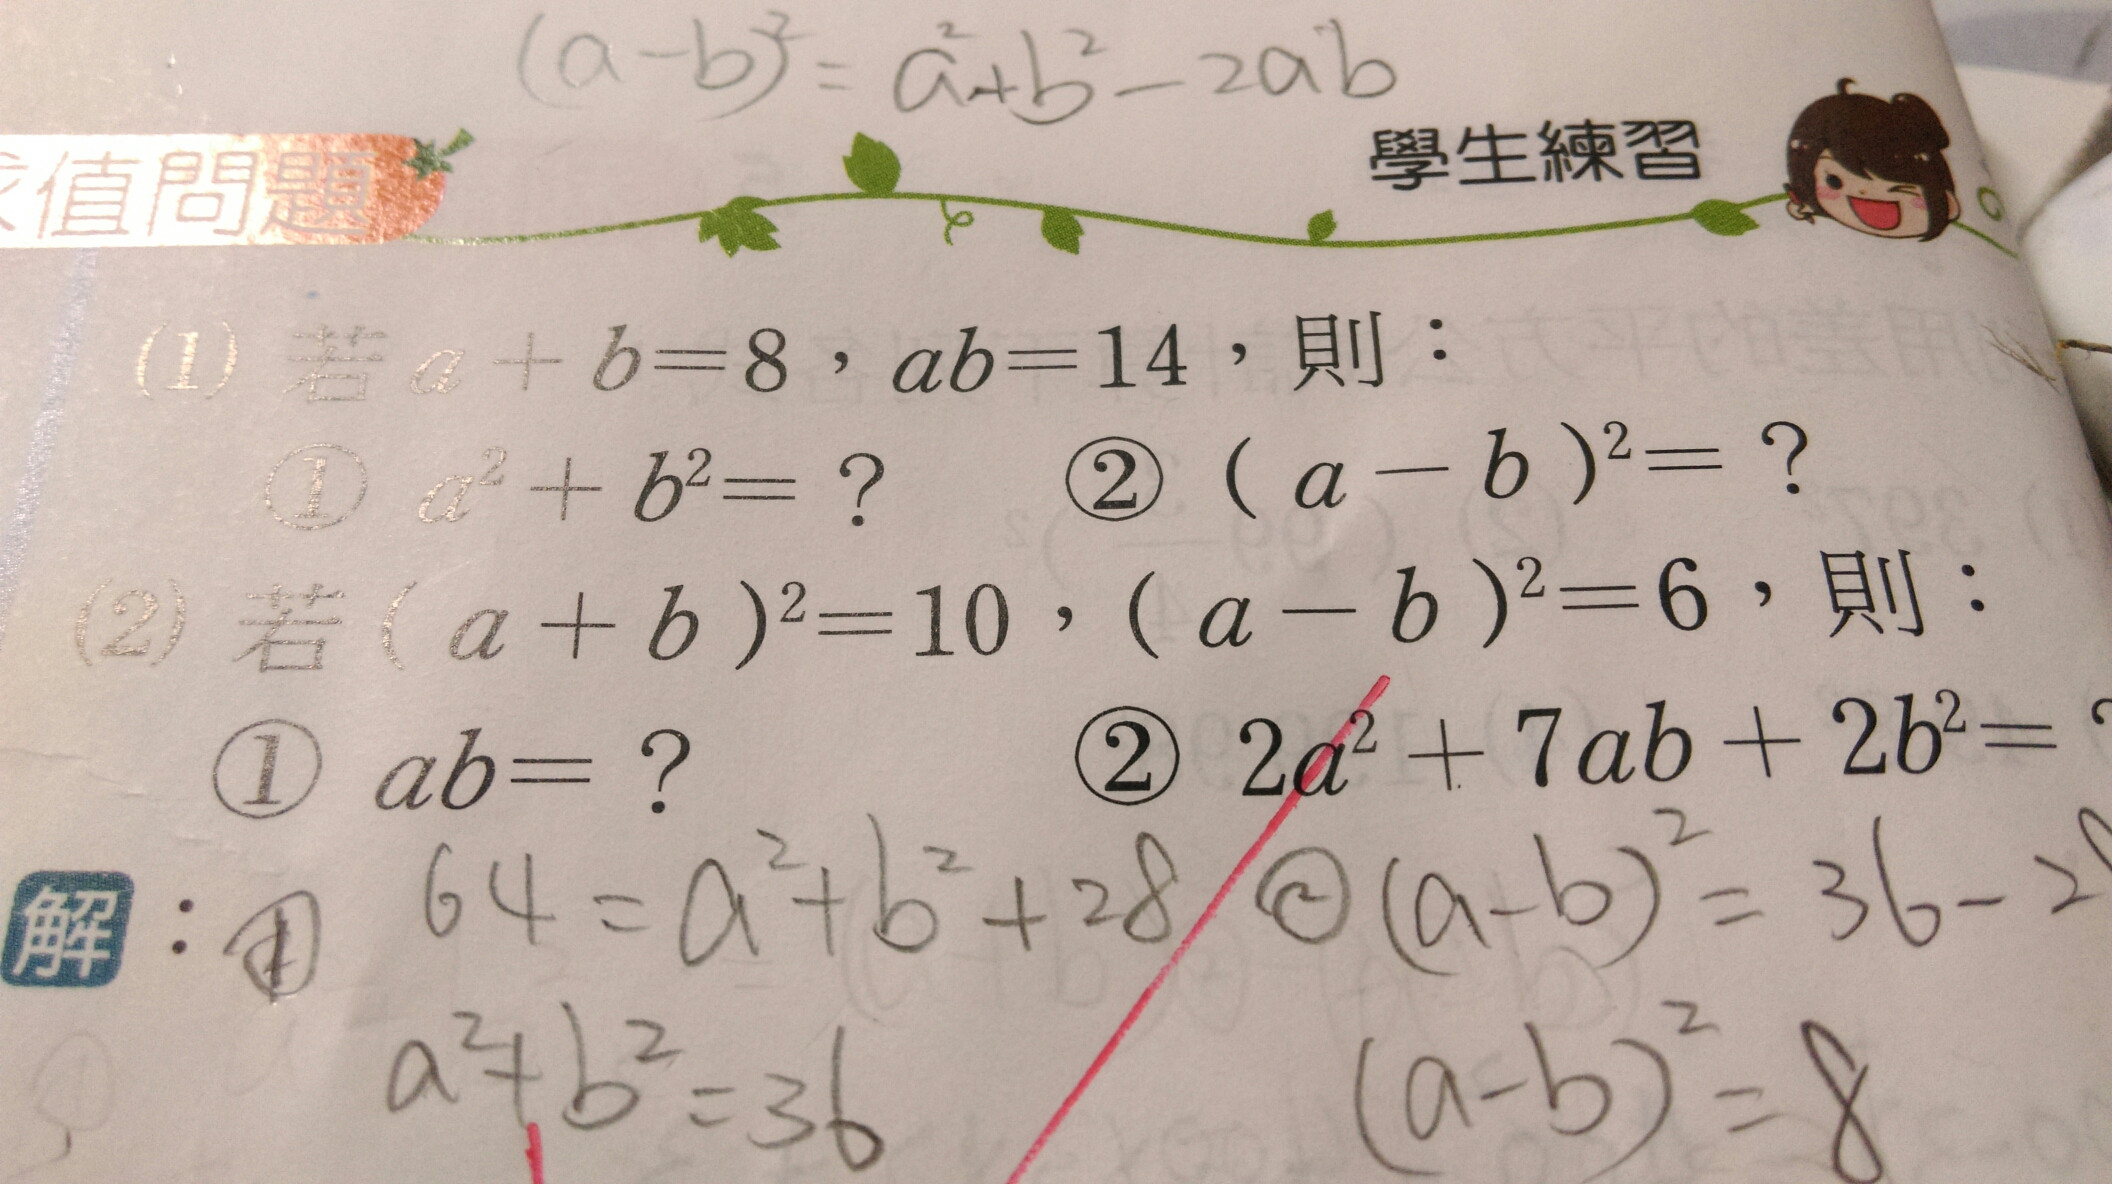 (a-b)²=a²+b²-2ab
求值問題
學生練習
(1) 若 a + b=8，ab=14，則：
① a² + b²=？ ② ( a - b )²=？
(2) 若 ( a + b )²=10，( a - b )²=6，則：
① ab=？ ② 2a² + 7ab + 2b²=？
解：① 64=a²+b²+28 ② (a-b)²=36-28
a²+b²=36 (a-b)²=8